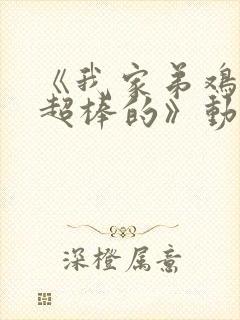 《我家弟鸡
超棒的》動
深橙属意